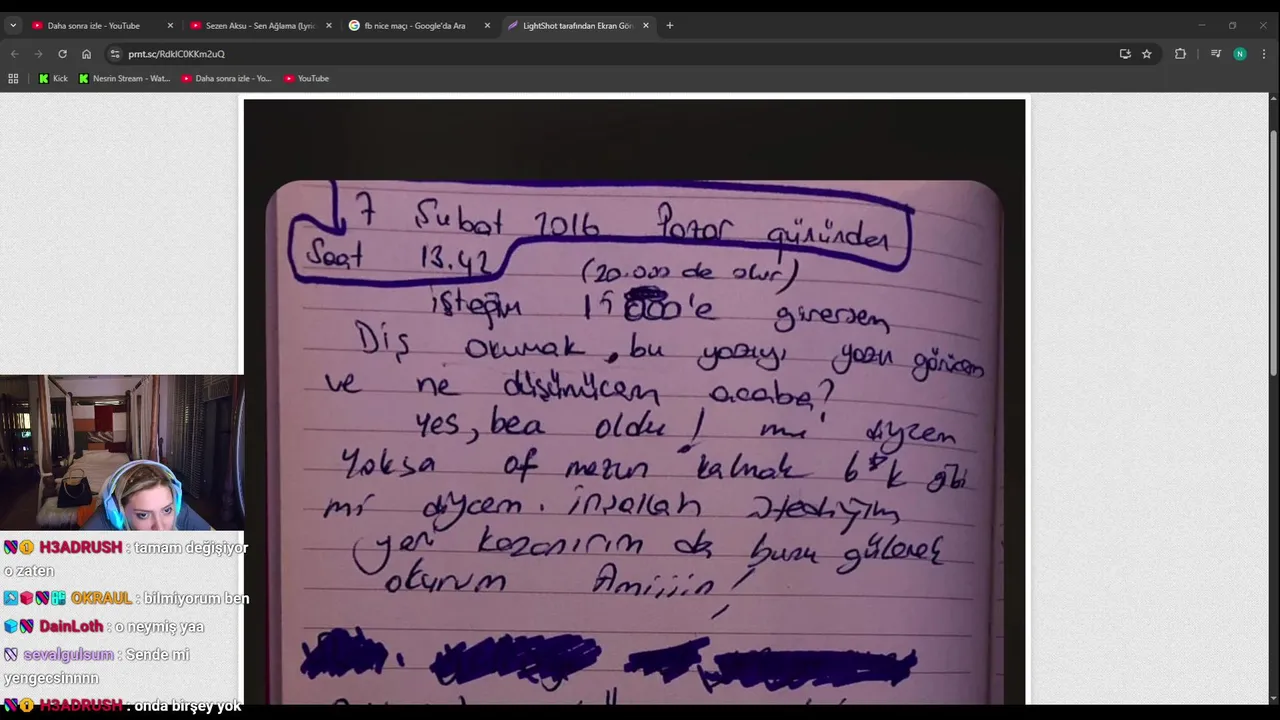 Daha sonra izle - YouTube
Sezen Aksu - Sen Ağlama (Lyric
fb nice maçı - Google'da Ara
LightShot tarafından Ekran Gör
prnt.sc/RdkIC0KKm2uQ
N
Kick
Nesrin Stream - Wat...
Daha sonra izle - Yo...
YouTube
7 Şubat 2016 Pazar gününden
Saat 13.42
(20.000 de olur)
isteğim 15 000'e girersem
Diş okumak, bu yazıyı yazın görücem
ve ne düşünücem acaba?
yes, bea oldu! mu diycem
Yoksa of mezun kalmak b*k gibi
mi diycem. inşallah istediğim
yeri kazanırım da bunu gülerek
okurum Amiiin!
H3ADRUSH : tamam değişiyor
o zaten
OKRAUL : bilmiyorum ben
DainLoth : o neymiş yaa
sevalgulsum : Sende mi
yengecsinnnn
H3ADRUSH : onda birşey yok